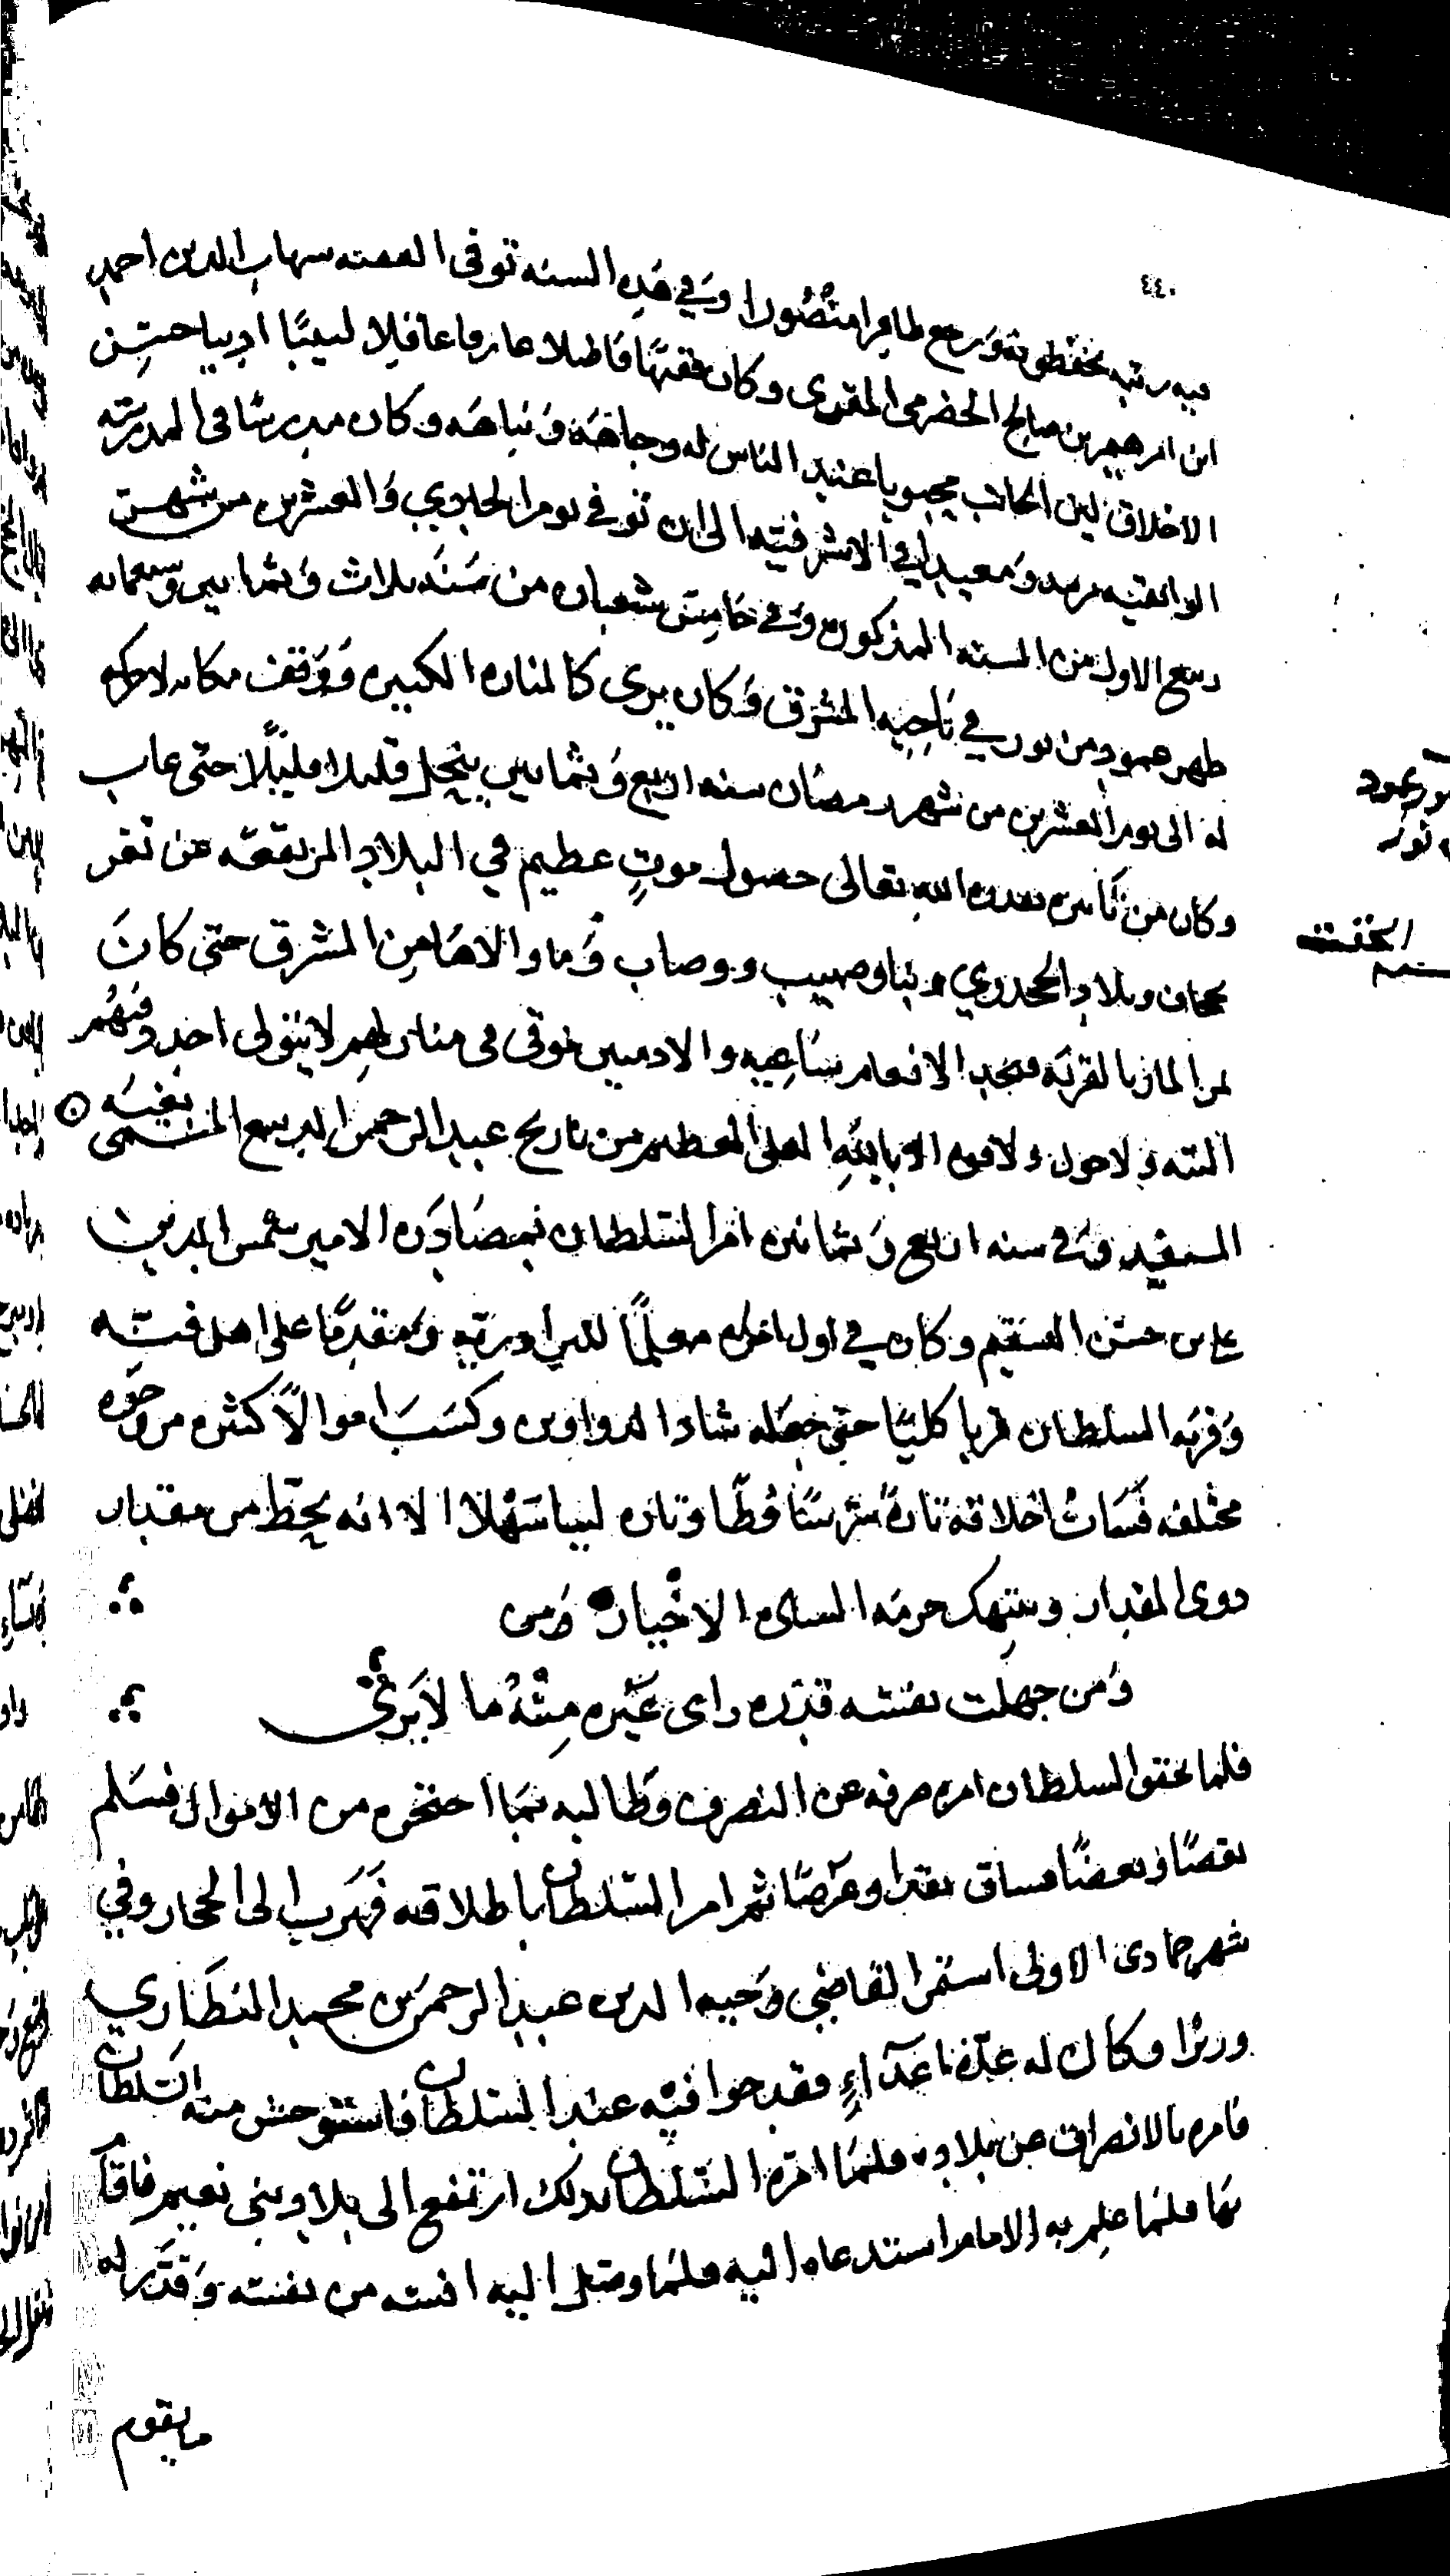 ٤٤٠
فيه رتبه يحفظونه ورجع ظافرا منصورا وفي هذه السنه توفى الفقيه شهاب الدين احمد
ابن ابرهيم بن صالح الحضرمي المقرى وكان فقيها فاضلا عارفا عاقلا لبيبا اديبا حسن
الاخلاق لين الجانب محبوبا عند الناس له وجاهه ونباهه وكان مدرسا في المدرسه
الواثقيه بزبيد ومعيدا في الاشرفيه الى ان توفي يوم الحادي والعشرين من شهر
ربيع الاول من السنه المذكوره وفي خامس شعبان من سنه ثلاث وثمانين وسبعمائه
ظهر عمود من نور في ناحيه المشرق وكان يرى كالمناره الكبيره ووقف مكانه لا حركه
له الى يوم العشرين من شهر رمضان سنه اربع وثمانين ينحل قليلا قليلا حتى غاب
وكان من تاثيره بقدره الله تعالى حصول موت عظيم في البلاد المرتفعه عن تعز
وبلاد الجحدري وصهيب ووصاب وما والاها من المشرق حتى كان
يمر المار بالقريه فيجد الانعام سائبه والادميين موتى في منازلهم لا يتولى احد دفنهم
البته ولا حول ولا قوه الا بالله العلي العظيم من تاريخ عبد الرحمن الديبع المسمى بغيه ⊙
المستفيد وفي سنه اربع وثمانين امر السلطان بمصادره الامير شمس الدين
علي بن حسن وكان في اول امره معلما ومقدما على اهل فنه
وقربه السلطان قربا كليا حتى جعله شاد الدواوين وكسب اموالا كثيره من وجوه
مختلفه فكانت اخلاقه تارة شرسا فظا وتاره لينا سهلا الا انه يحط من مقدار
ذوى المقدار وينتهك حرمه الساده الاخيار ومن
ومن جهلت نفسه قدره راى غيره منه ما لا يرى
فلما تحقق السلطان امره صرفه عن التصرف وطالبه بما احتجره من الاموال فسلم
بعضا وبعضا فساق نقدا وعرضا ثم امر السلطان باطلاقه فهرب الى الحجاز وفي
شهر جمادى الاولى استمر القاضي وجيه الدين عبد الرحمن بن محمد النظاري
وزيرا وكان له عدة اعداء فقدحوا فيه عند السلطان فاستوحش منه السلطان
فامره بالانصراف عن بلاده فلما امره السلطان بذلك ارتفع الى بلاد بني نعيم فاقام
بها فلما علم به الامام استدعاه اليه فلما وصل اليه انسه من نفسه وقرر له
ما يقوم